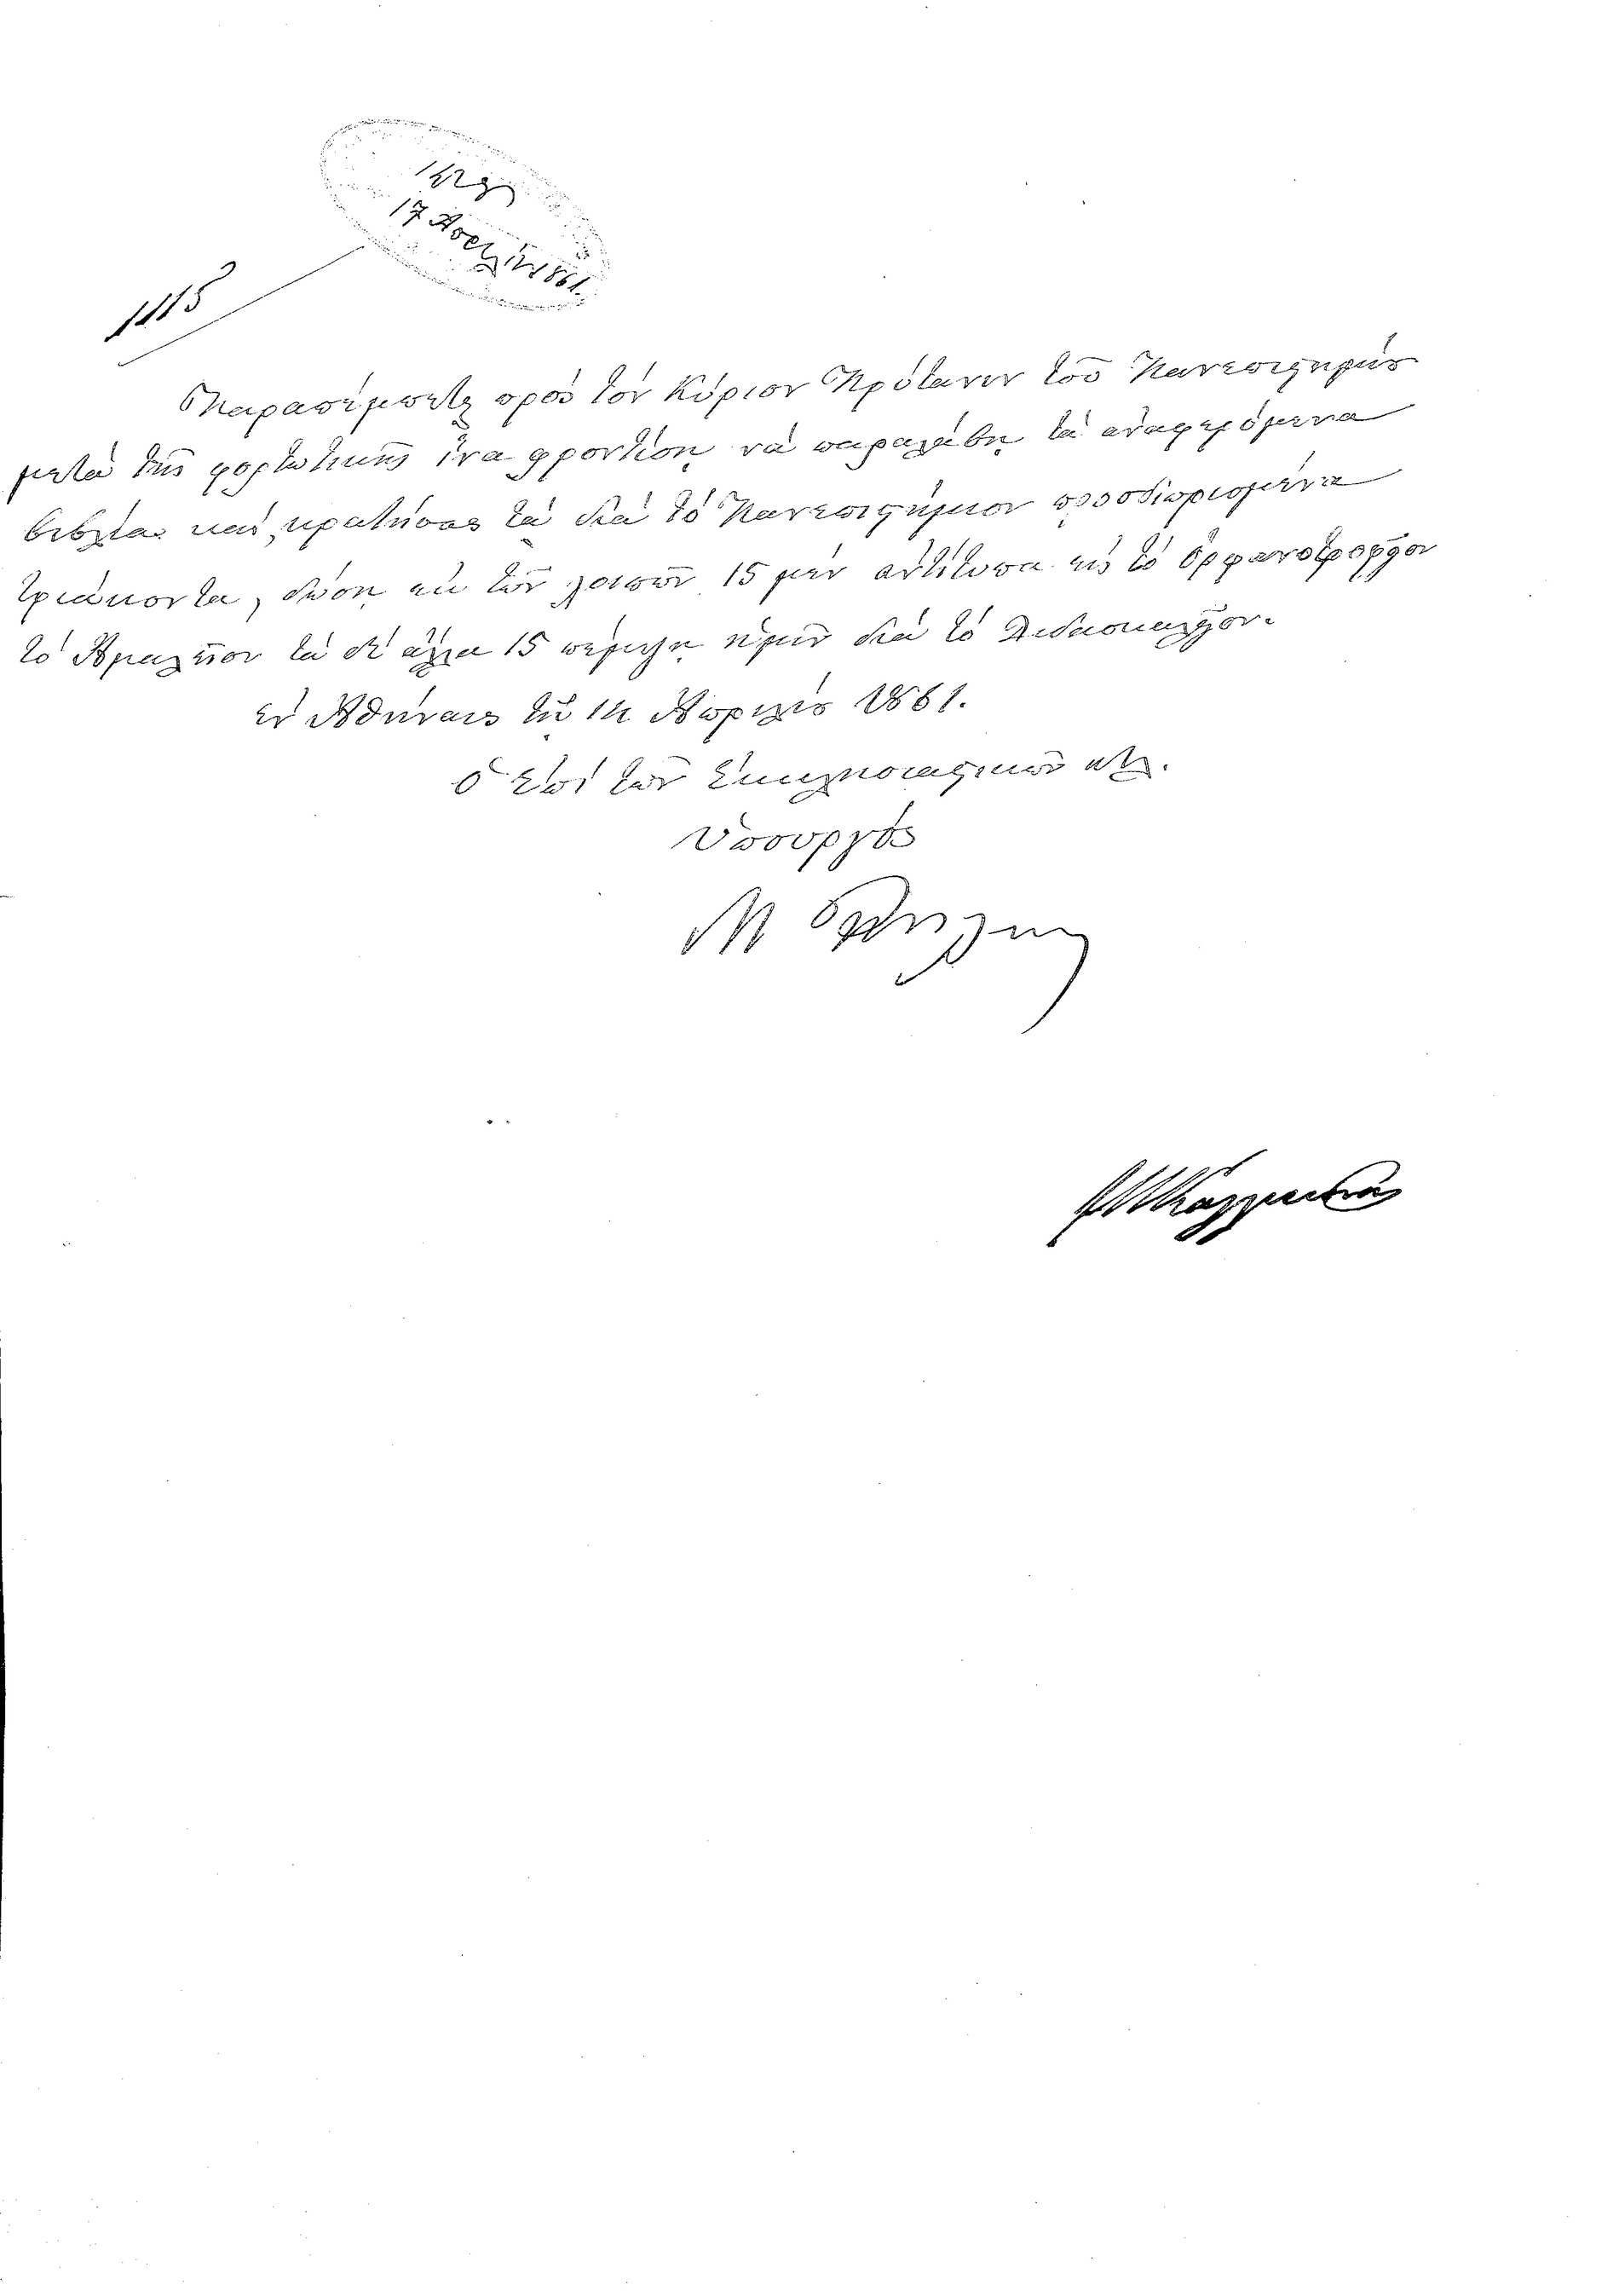 1429
17 Νοεμ 1861
1115
Παραπέμπεται πρὸς τὸν Κύριον Πρύτανιν τοῦ Πανεπιστημίου
μετὰ τῆς φορτωτικῆς ἵνα φροντίσῃ νὰ παραλάβῃ τὰ ἀναφερόμενα
βιβλία καὶ κρατήσας τὰ διὰ τὸ Πανεπιστήμιον προσδιωρισμένα
τριάκοντα, ἐκ τῶν λοιπῶν 15 μὲν ἀντίτυπα εἰς τὸ Ὀρφανοτροφεῖον
τὸ Ἀμαλίειον τὰ δὲ ἄλλα 15 πέμψῃ ἡμῖν διὰ τὸ Διδασκαλεῖον.
Ἐν Ἀθήναις τῇ 14 1861.
Ὁ ἐπὶ τῶν Ἐκκλησιαστικῶν κτλ.
Ὑπουργός